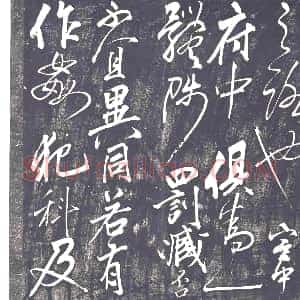 之路也宮中
府中俱為一
體陟罰臧否
不宜異同若有
作姦犯科及